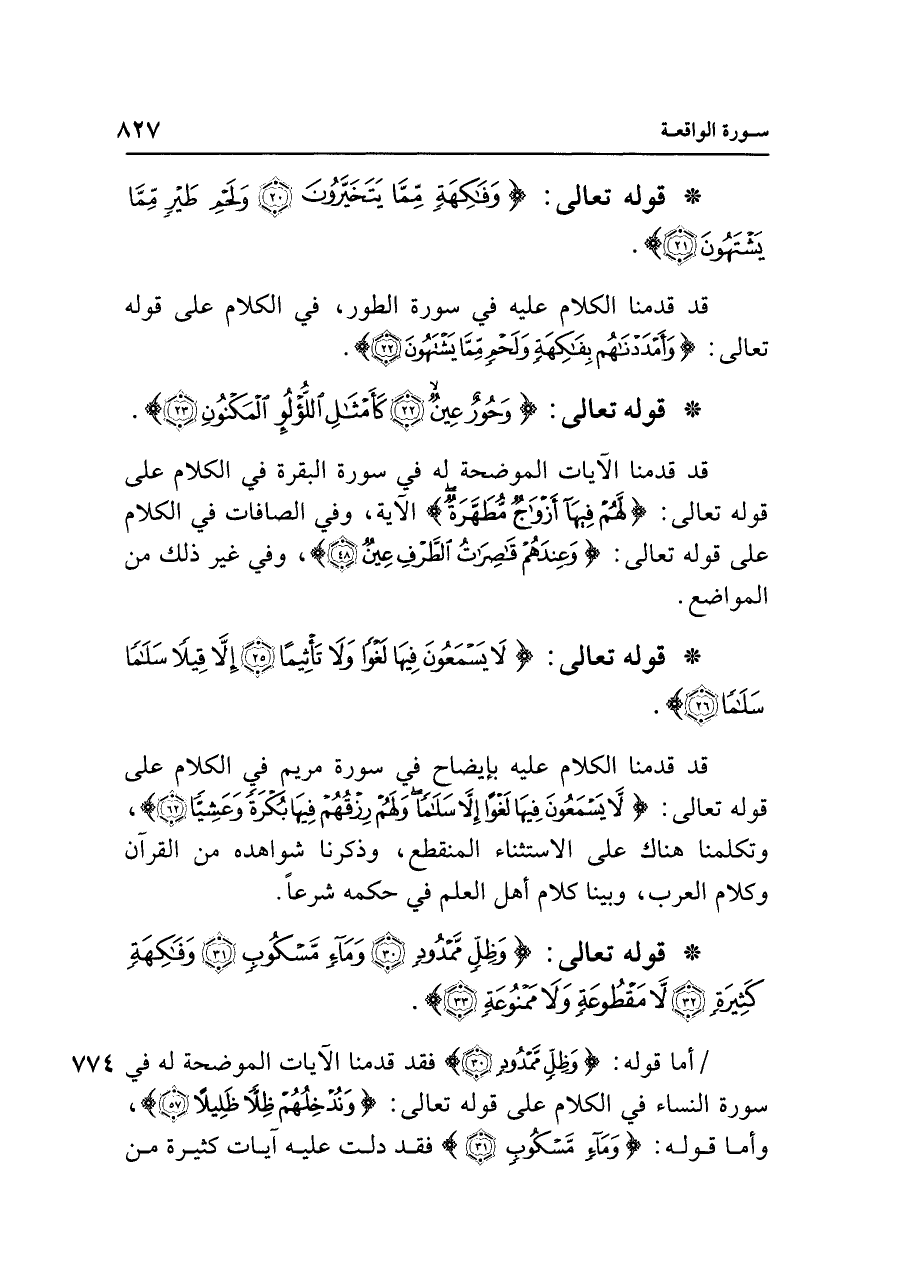 سورة الواقعة ٨٢٧
* قوله تعالى: ﴿ وَفَٰكِهَةٖ مِّمَّا يَتَخَيَّرُونَ ٢٠ وَلَحۡمِ طَيۡرٖ مِّمَّا
يَشۡتَهُونَ ٢١﴾ .
قد قدمنا الكلام عليه في سورة الطور، في الكلام على قوله
تعالى: ﴿ وَأَمۡدَدۡنَٰهُم بِفَٰكِهَةٖ وَلَحۡمٖ مِّمَّا يَشۡتَهُونَ ٢٢﴾ .
* قوله تعالى: ﴿ وَحُورٌ عِينٞ ٢٢ كَأَمۡثَٰلِ ٱللُّؤۡلُوِٕ ٱلۡمَكۡنُونِ ٢٣﴾ .
قد قدمنا الآيات الموضحة له في سورة البقرة في الكلام على
قوله تعالى: ﴿ لَّهُمۡ فِيهَآ أَزۡوَٰجٞ مُّطَهَّرَةٞۖ﴾ الآية، وفي الصافات في الكلام
على قوله تعالى: ﴿ وَعِندَهُمۡ قَٰصِرَٰتُ ٱلطَّرۡفِ عِينٞ ٤٨﴾، وفي غير ذلك من
المواضع.
* قوله تعالى: ﴿ لَا يَسۡمَعُونَ فِيهَا لَغۡوٗا وَلَا تَأۡثِيمًا ٢٥ إِلَّا قِيلٗا سَلَٰمٗا
سَلَٰمٗا ٢٦﴾ .
قد قدمنا الكلام عليه بإيضاح في سورة مريم في الكلام على
قوله تعالى: ﴿ لَّا يَسۡمَعُونَ فِيهَا لَغۡوًا إِلَّا سَلَٰمٗاۖ وَلَهُمۡ رِزۡقُهُمۡ فِيهَا بُكۡرَةٗ وَعَشِيّٗا ٦٢﴾،
وتكلمنا هناك على الاستثناء المنقطع، وذكرنا شواهده من القرآن
وكلام العرب، وبينا كلام أهل العلم في حكمه شرعاً.
* قوله تعالى: ﴿ وَظِلّٖ مَّمۡدُودٖ ٣٠ وَمَآءٖ مَّسۡكُوبٖ ٣١ وَفَٰكِهَةٖ
كَثِيرَةٖ ٣٢ لَّا مَقۡطُوعَةٖ وَلَا مَمۡنُوعَةٖ ٣٣﴾ .
/ أما قوله: ﴿ وَظِلّٖ مَّمۡدُودٖ ٣٠﴾ فقد قدمنا الآيات الموضحة له في ٧٧٤
سورة النساء في الكلام على قوله تعالى: ﴿ وَنُدۡخِلُهُمۡ ظِلّٗا ظَلِيلًا ٥٧﴾،
وأما قوله: ﴿ وَمَآءٖ مَّسۡكُوبٖ ٣١ ﴾ فقد دلت عليه آيات كثيرة من